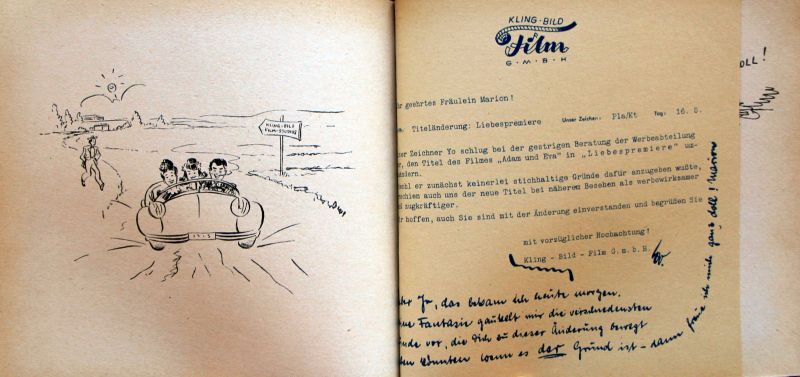 KLING-BILD
FILM-STUDIOS
KLING-BILD
Film
G·M·B·H
hr geehrtes Fräulein Marion!
a. Titeländerung: Liebespremiere Unser Zeichen: Pla/Kt Tag: 16.5.
er Zeichner Yo schlug bei der gestrigen Beratung der Werbeabteilung
r, den Titel des Filmes „Adam und Eva" in „Liebespremiere" um-
sieren.
hl er zunächst keinerlei stichhaltige Gründe dafür anzugeben wußte,
schien auch uns der neue Titel bei näherem Besehen als werbewirksamer
d zugkräftiger.
r hoffen, auch Sie sind mit der Änderung einverstanden und begrüßen Sie
mit vorzüglicher Hochachtung!
Kling - Bild - Film G.m.b.H.
Yo, das bekam ich heute morgen.
ne Fantasie gaukelt mir die verschiedensten
nde vor, die Dich zu dieser Änderung bewegt
en könnten wenn es der Grund ist - dann freue ich mich ganz doll! Marion
OLL!